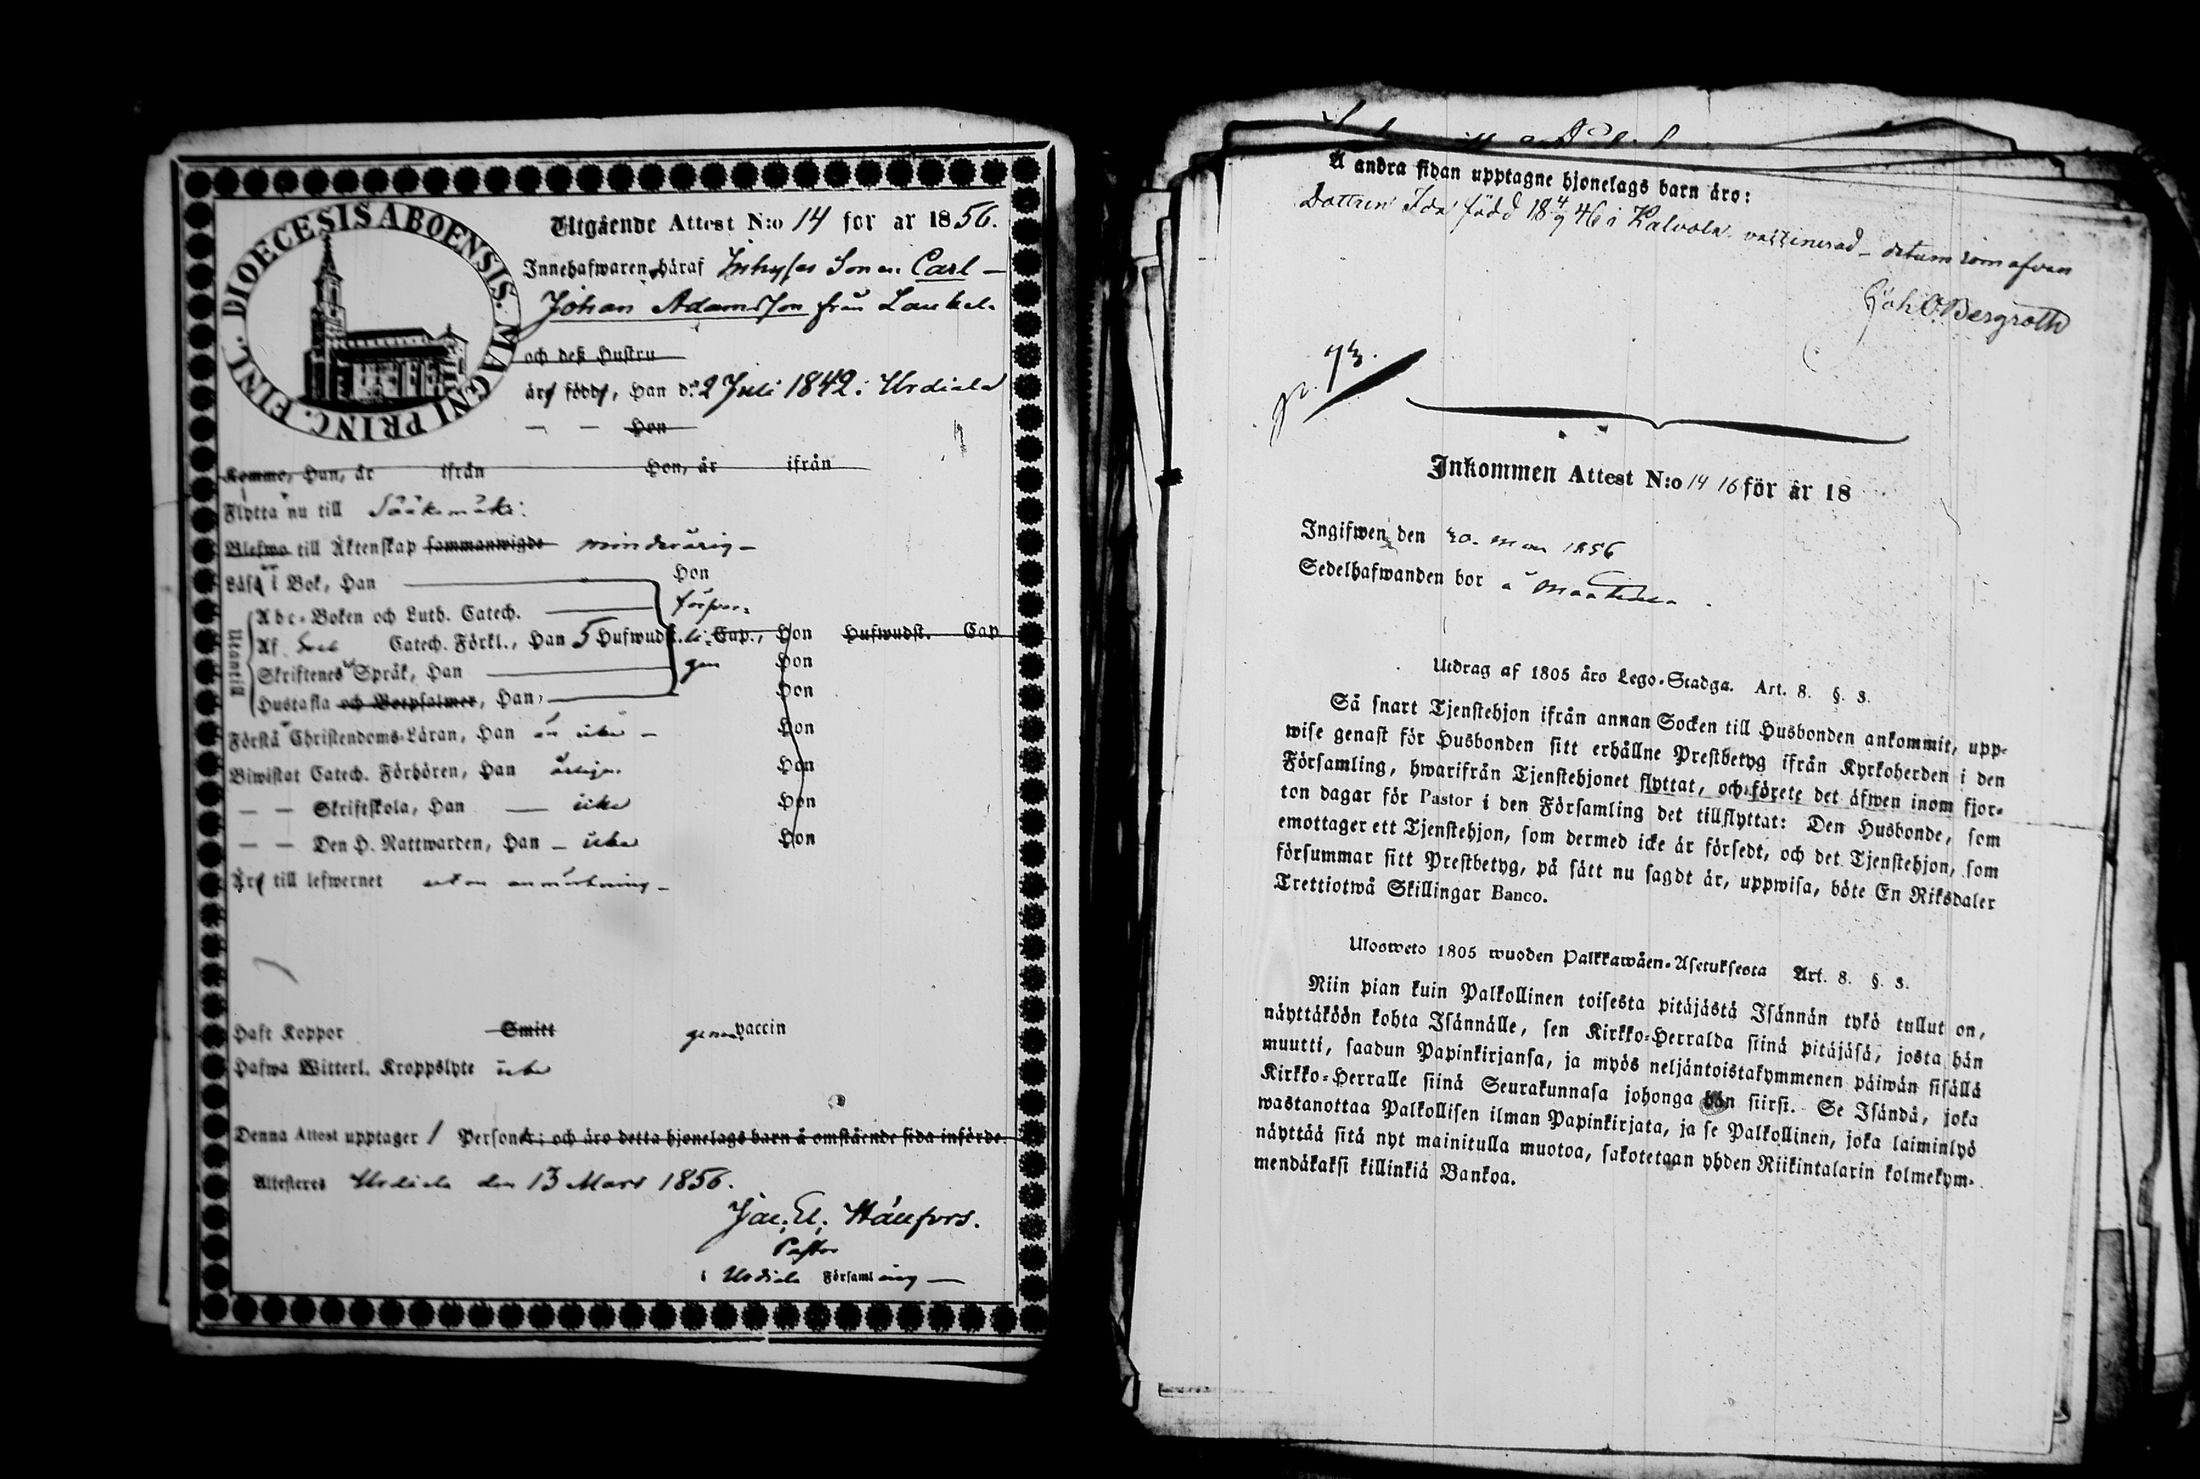 DIOECESIS ABOENSIS. MAGNI PRINC. FINL.
Utgående Attest N:o 14 for ar 1856.
Innehafwaren häraf Inhyses Sonen Carl —
Johan Adamsson från Laukela
och deß Hustru
äro födde, Han d. 2 Juli 1842 i Urdiala
— — Hon
Komme, Han, år ifrån Hon, år ifrån
Flytta nu till Sääksmäki.
Blefwo till Äktenskap sammanwigde minderårig —
Läsa i Bok, Han Hon
Utantill
Abc-Boken och Luth. Catech. förswar-
Af Catech. Förkl., Han 5 Hufwudst. Cap., Hon Hufwudst. Cap
Skriftenes Språk, Han Hon
Hustafla och Botpsalmer, Han, Hon
Förstå Christendoms-Läran, Han Hon
Biwistat Catech. Förhören, Han årligen Hon
— — Skriftskola, Han — icke Hon
— — Den H. Nattwarden, Han — icke Hon
Äro till lefwernet utan anmärkning —
Haft Koppor Smitt genom vaccin
Hafwa Witterl. Kroppslyte icke
Denna Attest upptager 1 Personer; och äro detta hjonelags barn å omstående sida införde.
Attesteres Urdiala den 13 Mars 1856.
Pastor
i Urdiala Församling —
Å andra sidan upptagne hjonelags barn äro:
Dottren Ida född 18 4/9 46 i Kalvola vaccinerad — datum som ofvan
Joh. O. Bergroth
p. 73.
Inkommen Attest N:o 14 16 för år 18
Ingifwen den 30. Mars 1856
Sedelhafwanden bor å
Utdrag af 1805 års Lego-Stadga. Art. 8. §. 3.
Så snart Tjenstehjon ifrån annan Socken till Husbonden ankommit, upp-
wise genast för Husbonden sitt erhållne Prestbetyg ifrån Kyrkoherden i den
Församling, hwarifrån Tjenstehjonet flyttat, och förete det äfwen inom fjor-
ton dagar för Pastor i den Församling det tillflyttat: Den Husbonde, som
emottager ett Tjenstehjon, som dermed icke är försedt, och det Tjenstehjon, som
försummar sitt Prestbetyg, på sätt nu sagdt är, uppwisa, böte En Riksdaler
Trettiotwå Skillingar Banco.
Ulosweto 1805 wuoden Palkkawäen-Asetuksesta Art. 8. §. 3.
Niin pian kuin Palkollinen toisesta pitäjästä Isännän tykö tullut on,
näyttäköön kohta Isännälle, sen Kirkko-Herralda siinä pitäjäsä, josta hän
muutti, saadun Papinkirjansa, ja myös neljäntoistakymmenen päiwän sisällä
Kirkko-Herralle siinä Seurakunnasa johonga hän siirsi. Se Isändä, joka
wastanottaa Palkollisen ilman Papinkirjata, ja se Palkollinen, joka laiminlyö
näyttää sitä nyt mainitulla muotoa, sakotetaan yhden Riikintalarin kolmekym-
mendäkaksi killinkiä Bankoa.